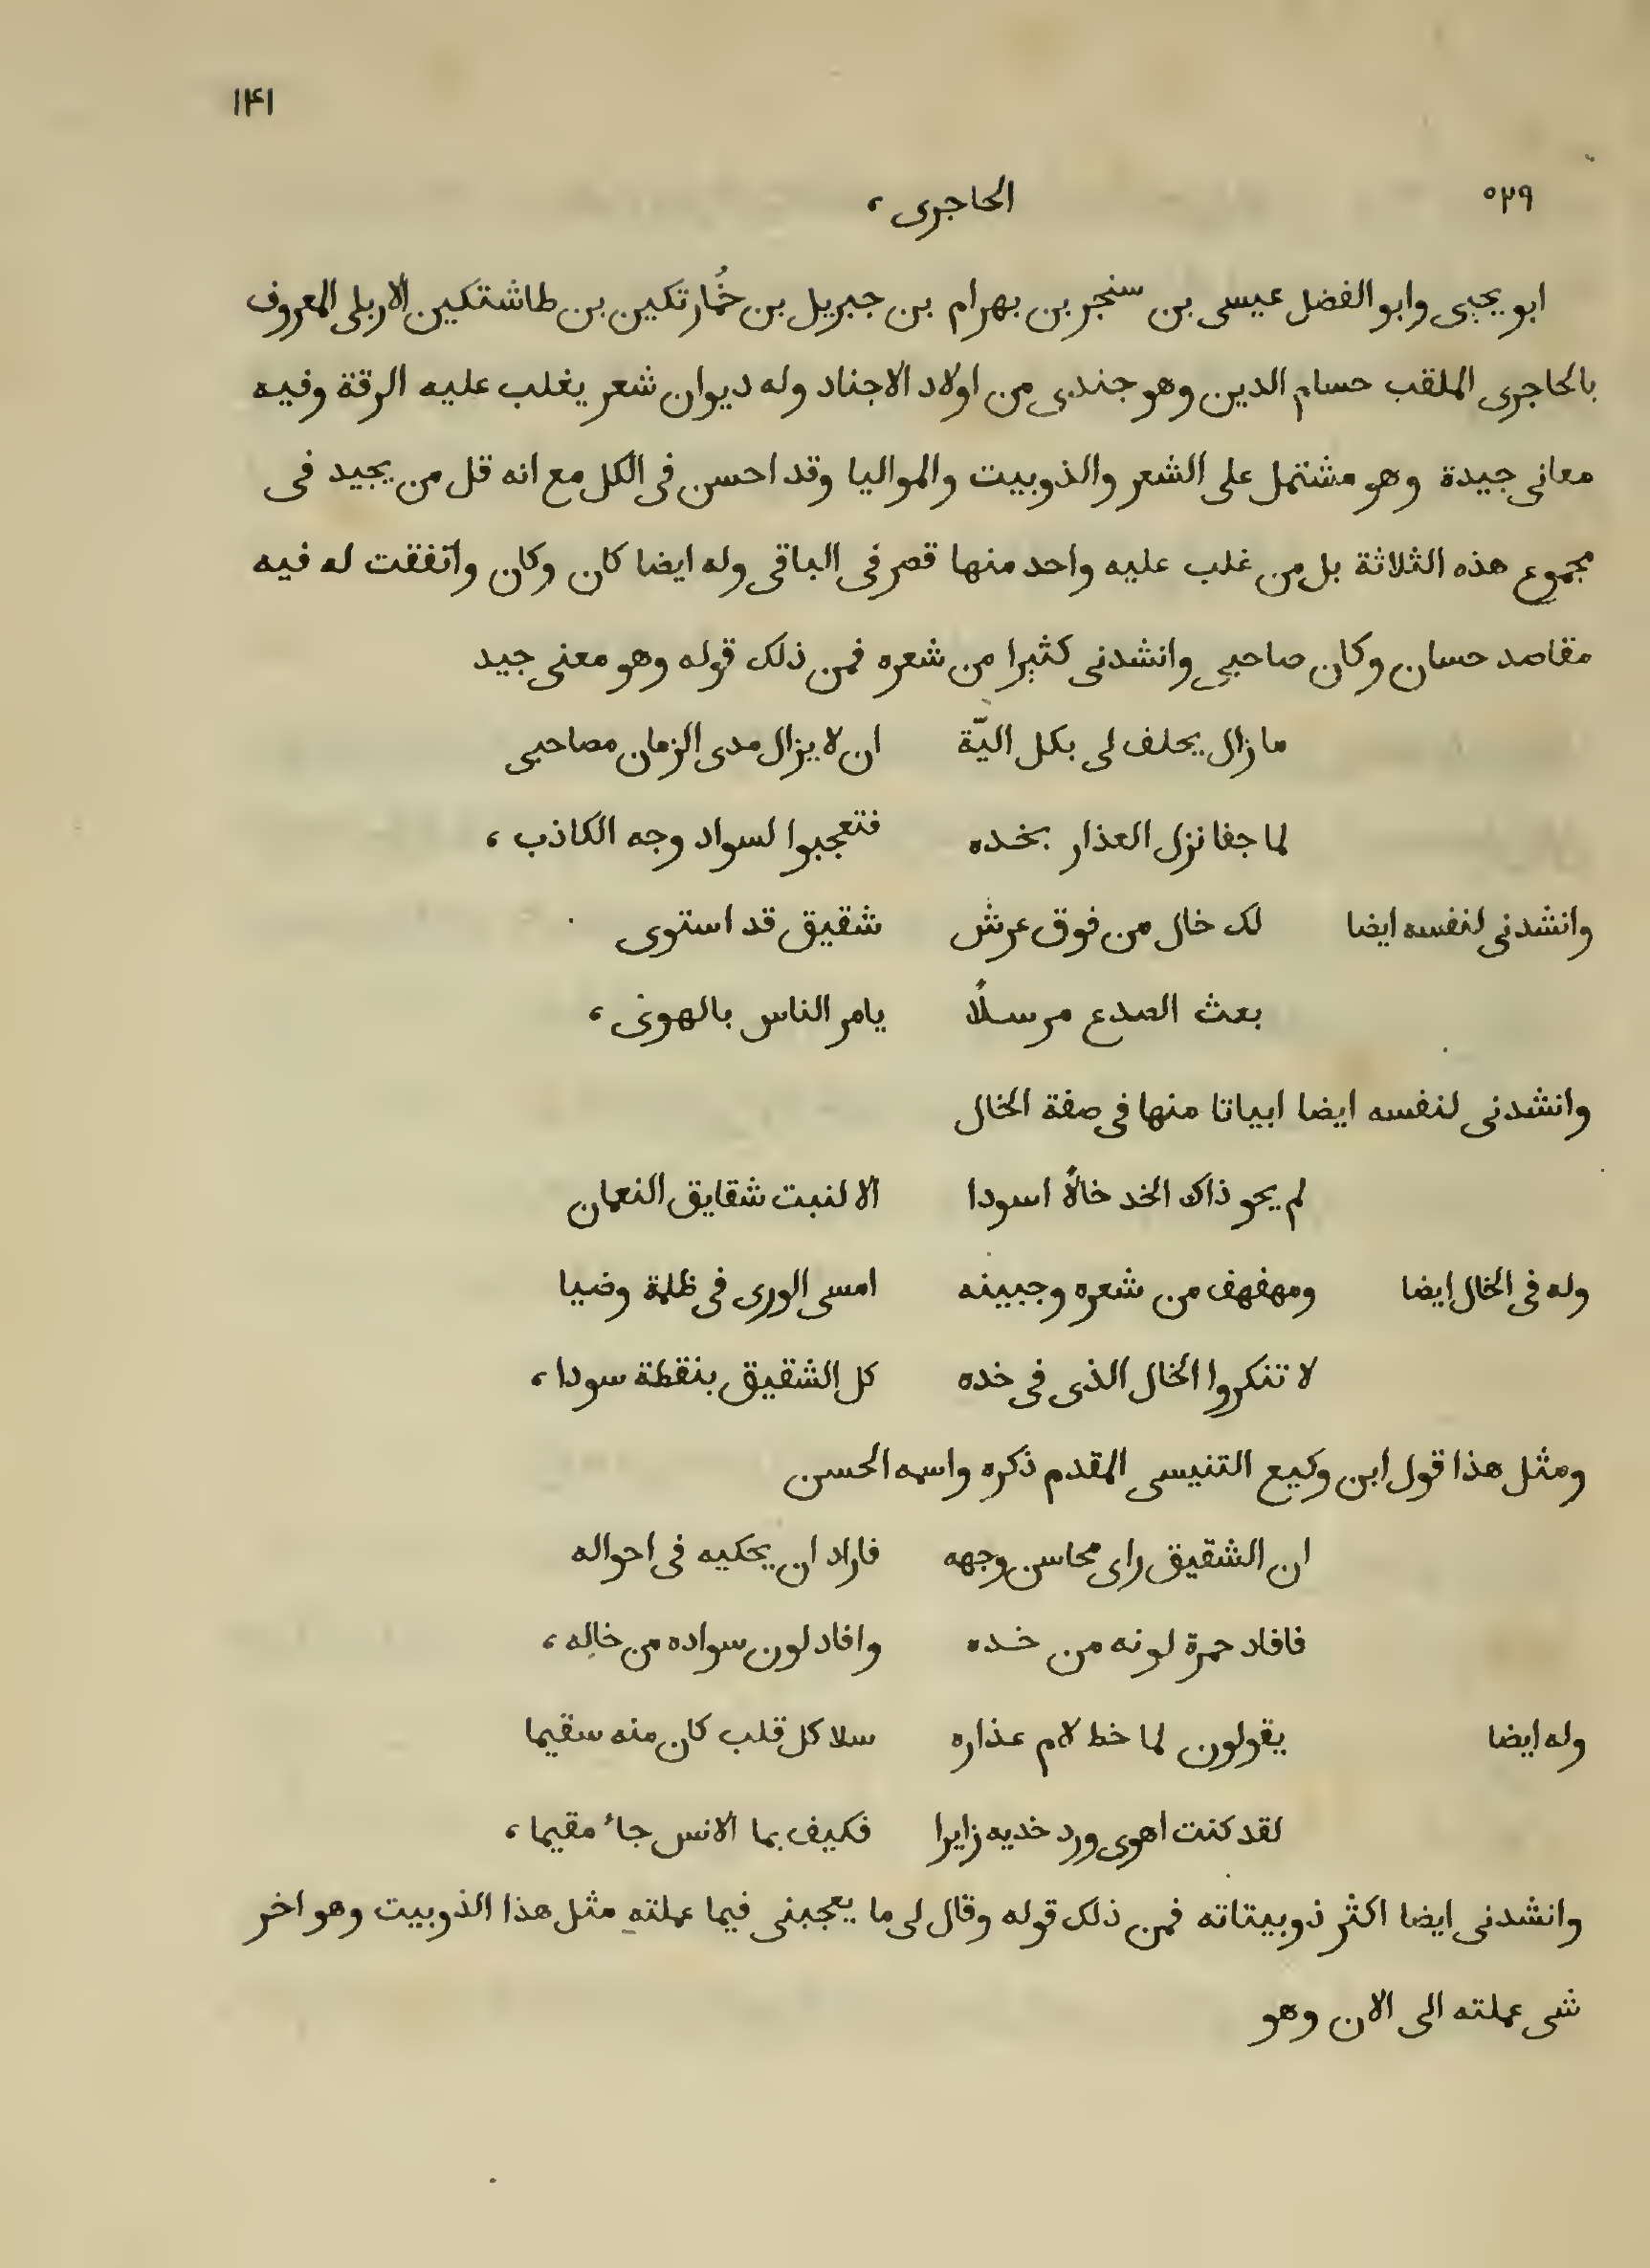 ١۴١
٥٢٩ الحاجرى ،
ابو يحيى وابو الفضل عيسى بن سنجر بن بهرام بن جبريل بن خُمارتكين بن طاشتكين الاربلى المعروف
بالحاجرى الملقب حسام الدين وهو جندى من اولاد الاجناد وله ديوان شعر يغلب عليه الرقة وفيه
معانى جيدة وهو مشتمل على الشعر والذوبيت والمواليا وقد احسن فى الكل مع انه قل من يجيد فى
مجموع هذه الثلاثة بل من غلب عليه واحد منها قصر فى الباقى وله ايضا كان وكان واتفقت له فيه
مقاصد حسان وكان صاحبى وانشدنى كثيرا من شعره فمن ذلك قوله وهو معنى جيد
ما زال يحلف لى بكل اليّة ان لا يزال مدى الزمان مصاحبى
لما جفا نزل العذار بخده فتعجبوا لسواد وجه الكاذب ،
وانشدنى لنفسه ايضا لك خال من فوق عرش شقيق قد استوى
بعث الصدع مرسلًا يامر الناس بالهوى ،
وانشدنى لنفسه ايضا ابياتا منها فى صفة الخال
لم يحو ذاك الخد خالًا اسودا الا لنبت شقايق النعمان
وله فى الخال ايضا ومهفهف من شعره وجبينه امسى الورى فى ظلمة وضيا
لا تنكروا الخال الذى فى خده كل الشقيق بنقطة سودا ،
ومثل هذا قول ابن وكيع التنيسى المقدم ذكره واسمه الحسن
ان الشقيق راى محاسن وجهه فاراد ان يحكيه فى احواله
فافاد حمرة لونه من خده وافاد لون سواده من خالِه ،
وله ايضا يقولون لما خط لام عذاره سلا كل قلب كان منه سقيما
لقد كنت اهوى ورد خديه زايرا فكيف بما الانس جاءُ مقيما ،
وانشدنى ايضا اكثر ذوبيتاته فمن ذلك قوله وقال لى ما يعجبنى فيما عملته مثل هذا الذوبيت وهو اخر
شى عملته الى الان وهو